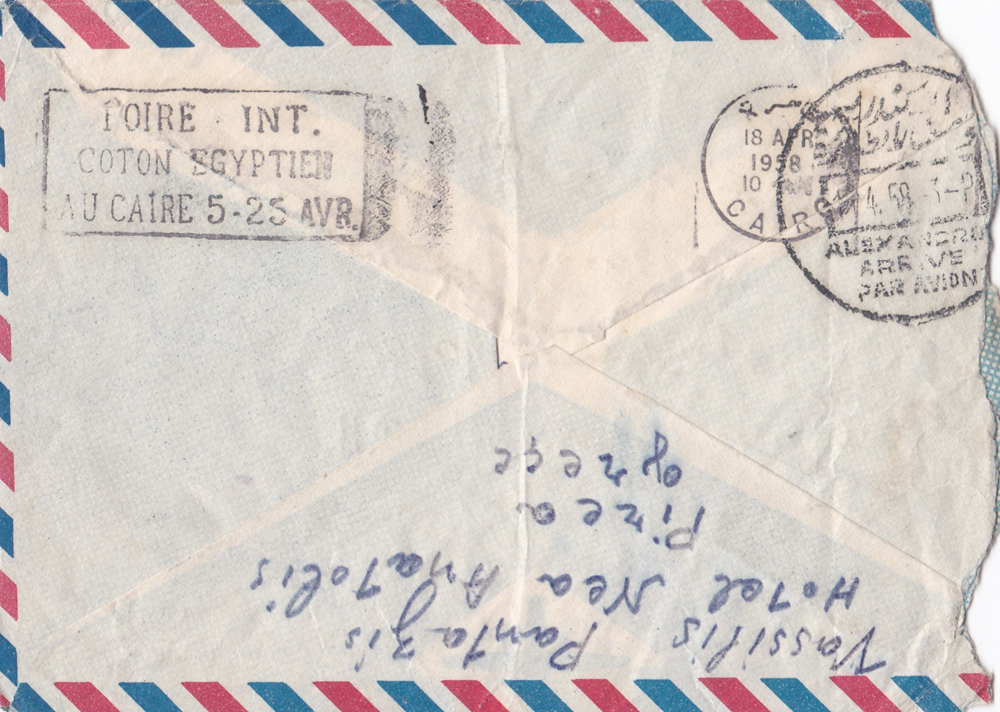 FOIRE INT.
COTON EGYPTIEN
AU CAIRE 5-25 AVR.
18 APR
1958
10 AM
CAIRO
4.58
ALEXANDRI
ARRIVE
PAR AVION
Vassilis Pantazis
Hotel Nea Anatolis
Pirea
grece